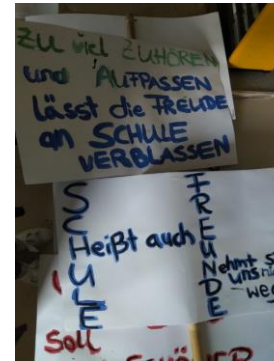 ZU viel ZUHÖREN
und AUFPASSEN
lässt die FREUDE
an SCHULE
VERBLASSEN
SCHULE
Heißt auch
FREUNDE
nehmt
uns
Soll